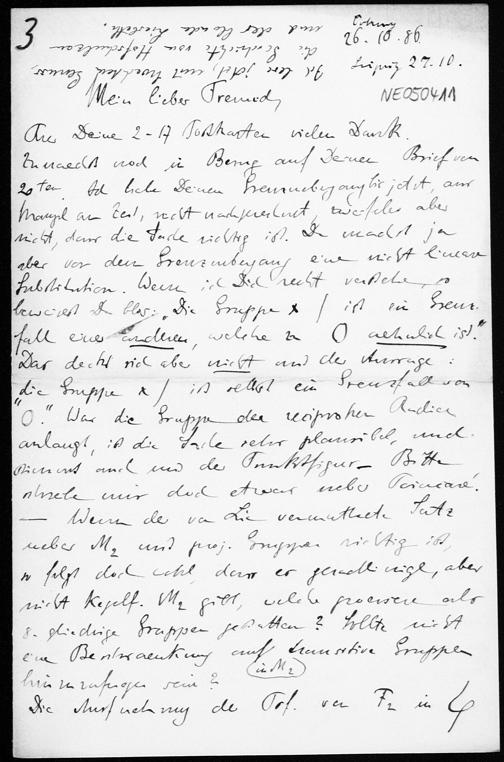 3
26. 10. 86
Leipzig 27. 10.
NE050411
Mein lieber Freund,
Für Deine 2-17 Postkarten vielen Dank.
Zunaechst noch in Bezug auf Deinen Brief vom
20ten. Ich habe Deinen Grenzuebergang bis jetzt, aus
Mangel an Zeit, nicht nachgerechnet, zweifele aber
nicht, dass die Sache richtig ist. Du machst ja
aber vor dem Grenzuebergang eine nicht lineare
Substitution. Wenn ich Dich recht verstehe, so
beweisest Du blos: „Die Gruppe x / ist ein Grenz-
fall einer anderen, welche zu O aehnlich ist."
Das deckt sich aber nicht mit der Aussage:
die Gruppe x / ist selbst ein Grenzfall von
"O". Was die Gruppe der reciproken Radien
anlangt, ist die Sache sehr plausibel, und
stimmt auch mit der Punktfigur — Bitte
schreibe mir doch etwas ueber Poincaré.
— Wenn der von Lie vermuthete Satz
ueber M2 und proj. Gruppen richtig ist,
so folgt doch wohl, dass er geradlinige, aber
nicht Kegelf. M2 gibt, welche groessere als
8. gliedrige Gruppen gestatten? Sollte nicht
eine Beschraenkung auf transitive Gruppen
in M2
hinzuzufuegen sein?
Die Ausfuehrung der Tof. von F2 in